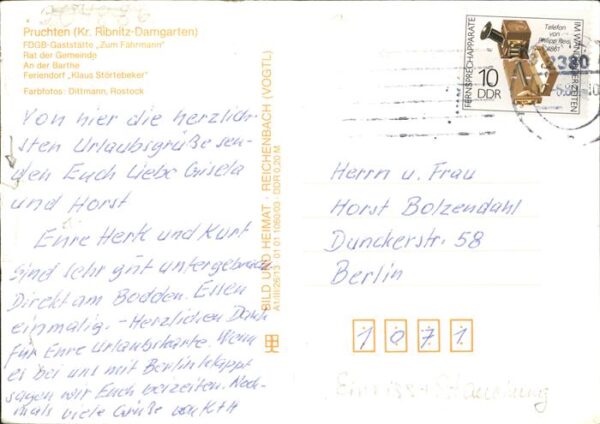 Pruchten (Kr. Ribnitz-Damgarten)
FDGB-Gaststätte „Zum Fährmann"
Rat der Gemeinde
An der Barthe
Feriendorf „Klaus Störtebeker"
Farbfotos: Dittmann, Rostock
Von hier die herzlich-
sten Urlaubsgrüße sen-
den Euch Liebe Gisela
und Horst
Eure Herta und Kurt
Sind sehr gut untergebracht
Direkt am Bodden. Essen
einmalig. - Herzlichen Dank
für Eure Urlaubskarte. Wenn
es bei uns mit Berlin klappt
sagen wir Euch beizeiten. Noch-
mals viele Grüße von K+H
BILD UND HEIMAT · REICHENBACH (VOGTL)
A1/III/26/13 01 01 1060/03 DDR 0,20 M
FERNSPRECHAPPARATE
IM WANDEL DER ZEITEN
Telefon
von
Philipp Reis
1861
10
DDR
2380
Herrn u. Frau
Horst Bolzendahl
Dunckerstr. 58
Berlin
1071